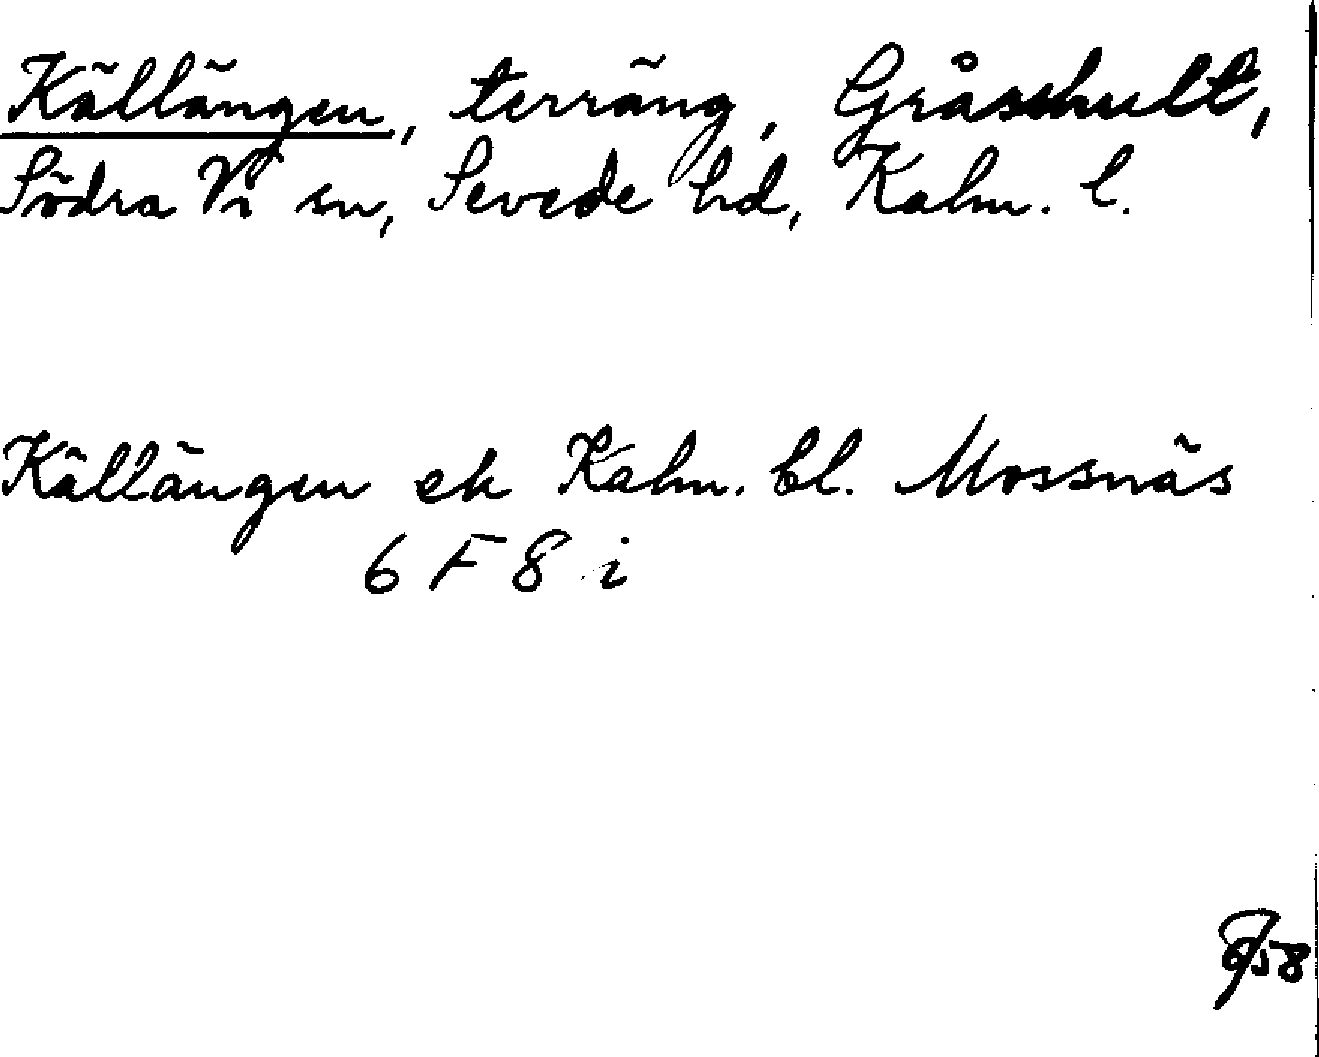 Källängen, terräng, Gråshult,
Södra Vi sn, Sevede hd, Kalm. l.
Källängen ek Kalm. bl. Mossnäs
6 F 8 i